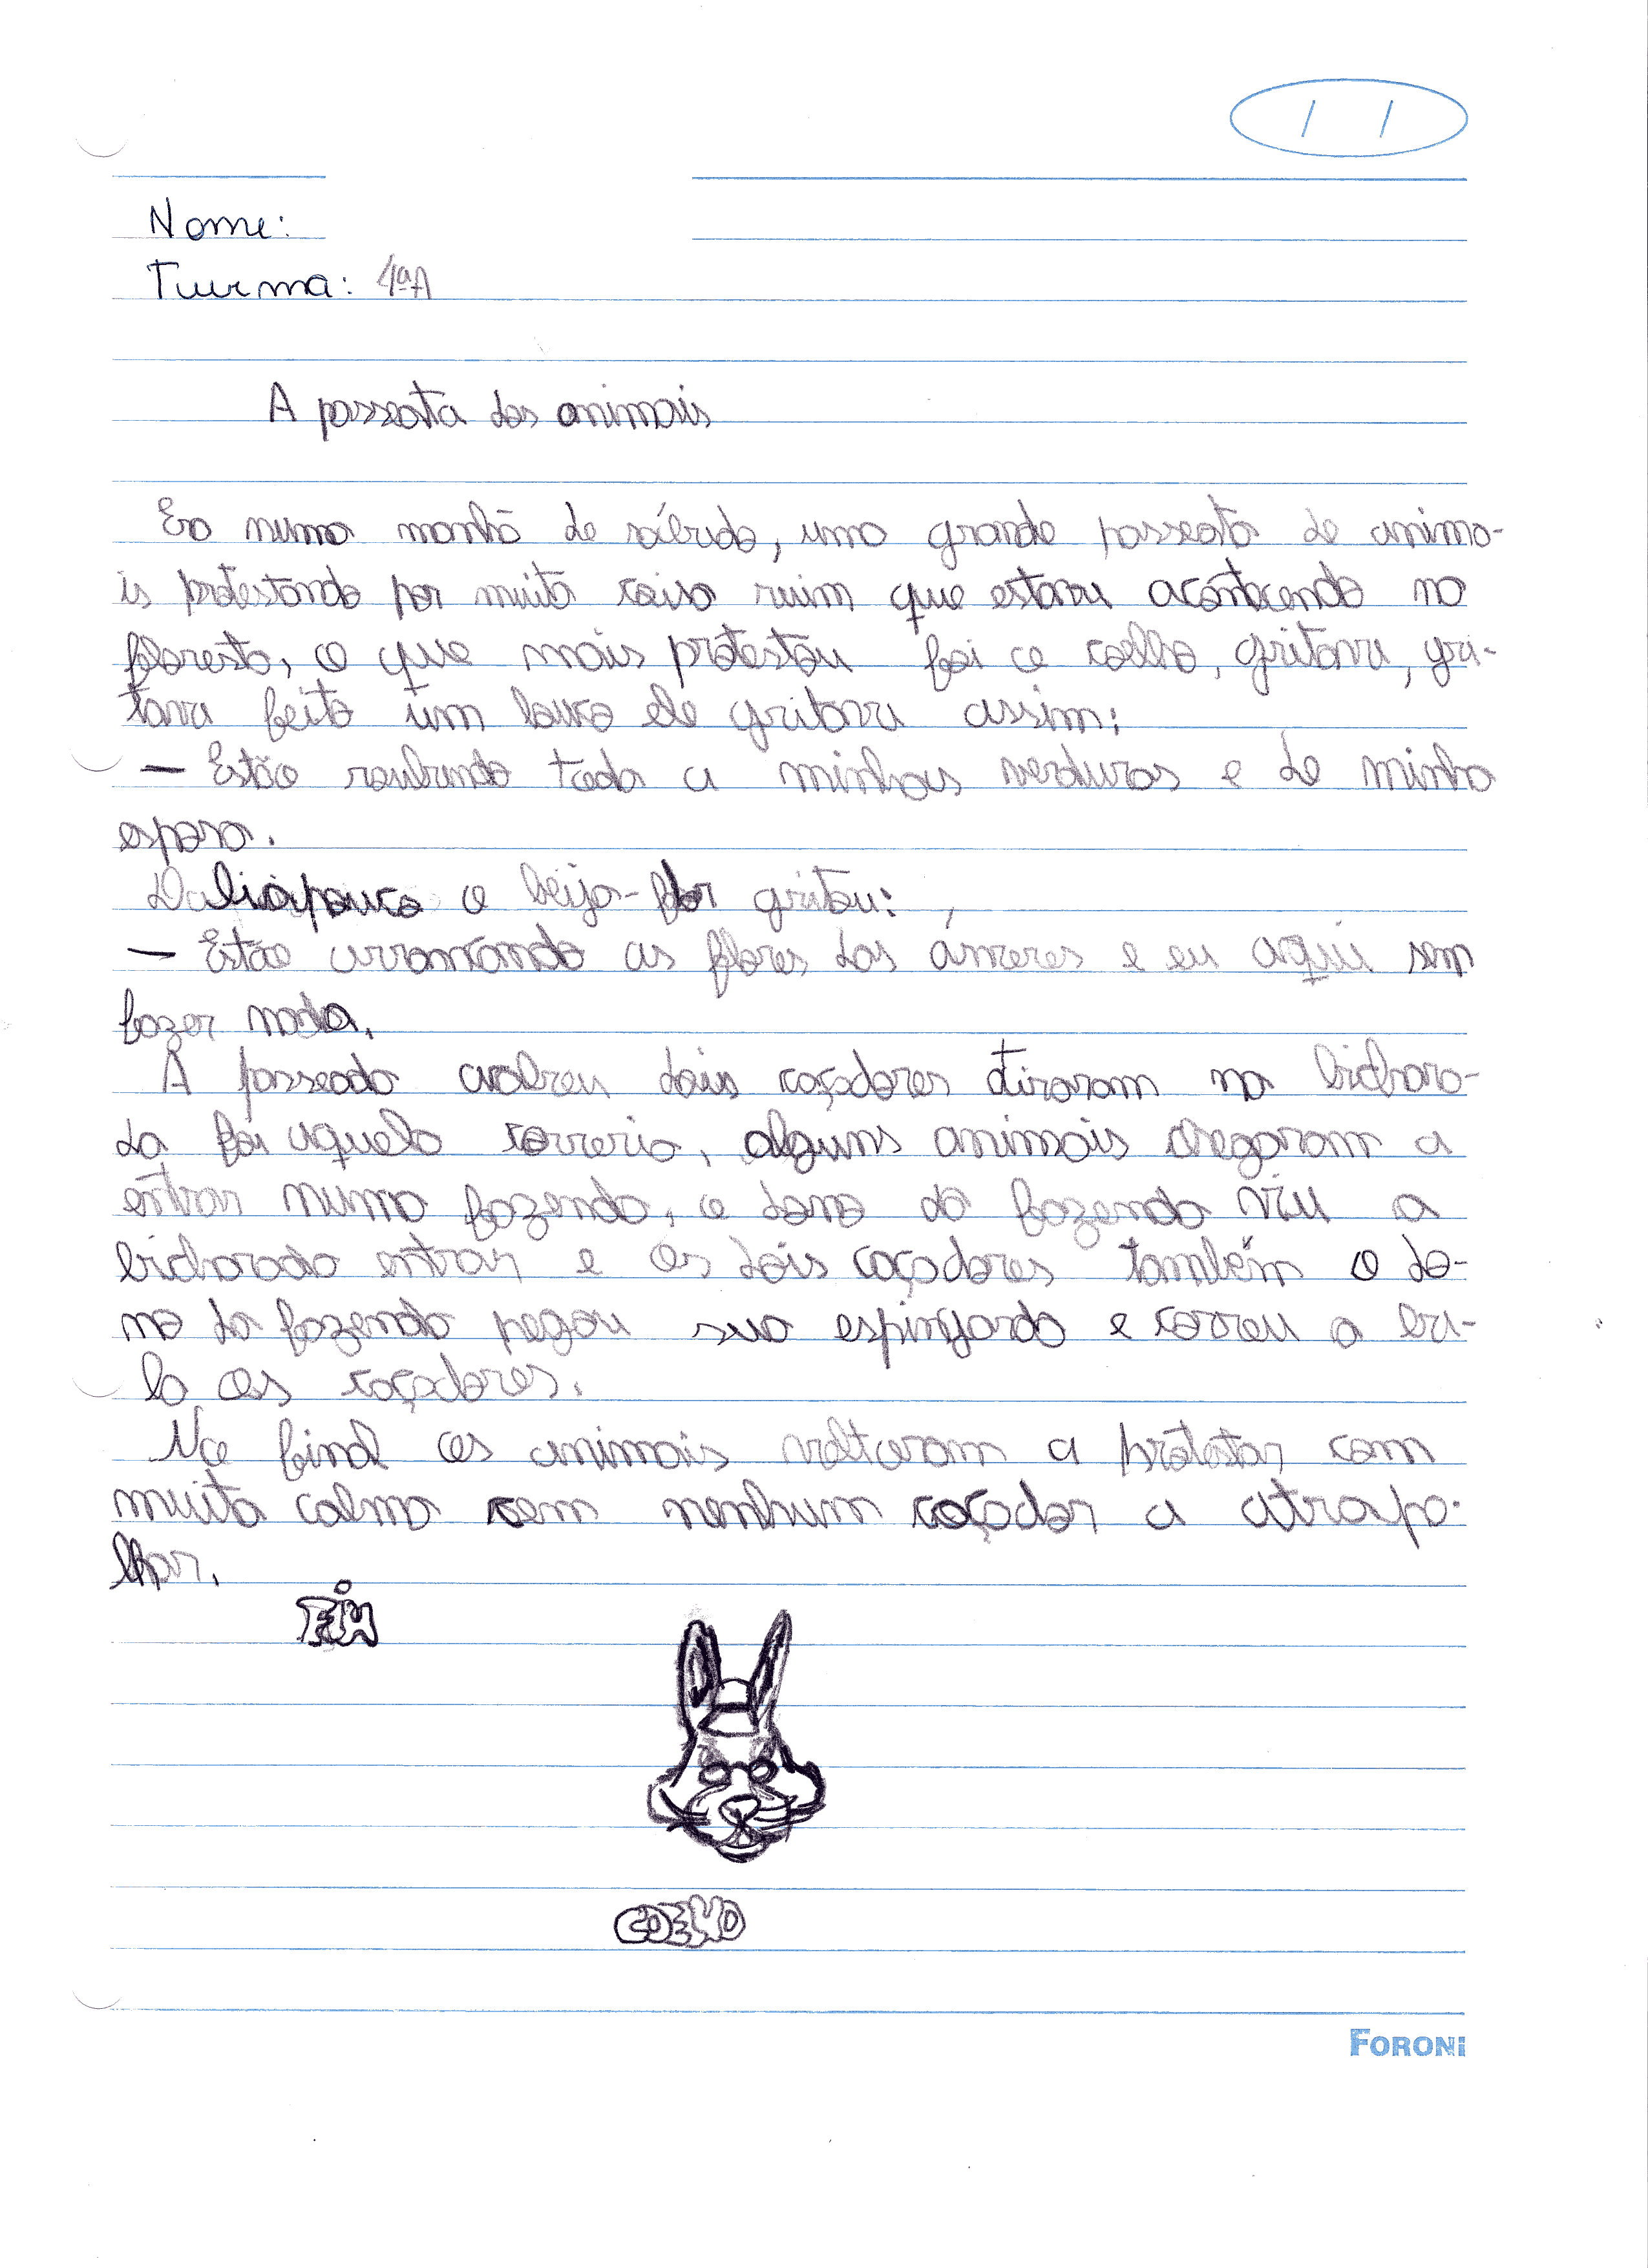 Nome:
Turma: 4ªA
A passeata dos animais
Era numa manhã de sábado, uma grande passeata de anima-
is protestando por muita coisa ruim que estava acontecendo na
floresta, o que mais protestou foi o coelho, gritava, gri-
tava feito um louco ele gritava assim:
— Estão roubando toda a minhas verduras e de minha
espoza.
Daliapouco o beija-flor gritou:
— Estão arrancando as flores das árvores e eu aqui sem
fazer nada.
A passeada dois caçadores tiraram na bichara-
da foi aquela correria, alguns animais chegaram a
entrar numa fazenda, o dono da fazenda viu a
bicharada entrar e os dois caçadores também o do-
no da fazenda pegou sua espingarda e correu a
os caçadores.
No final os animais voltaram a protestar com
muita calma sem nenhum caçador a atrapa-
lhar.
FIM
COELHO
FORONI